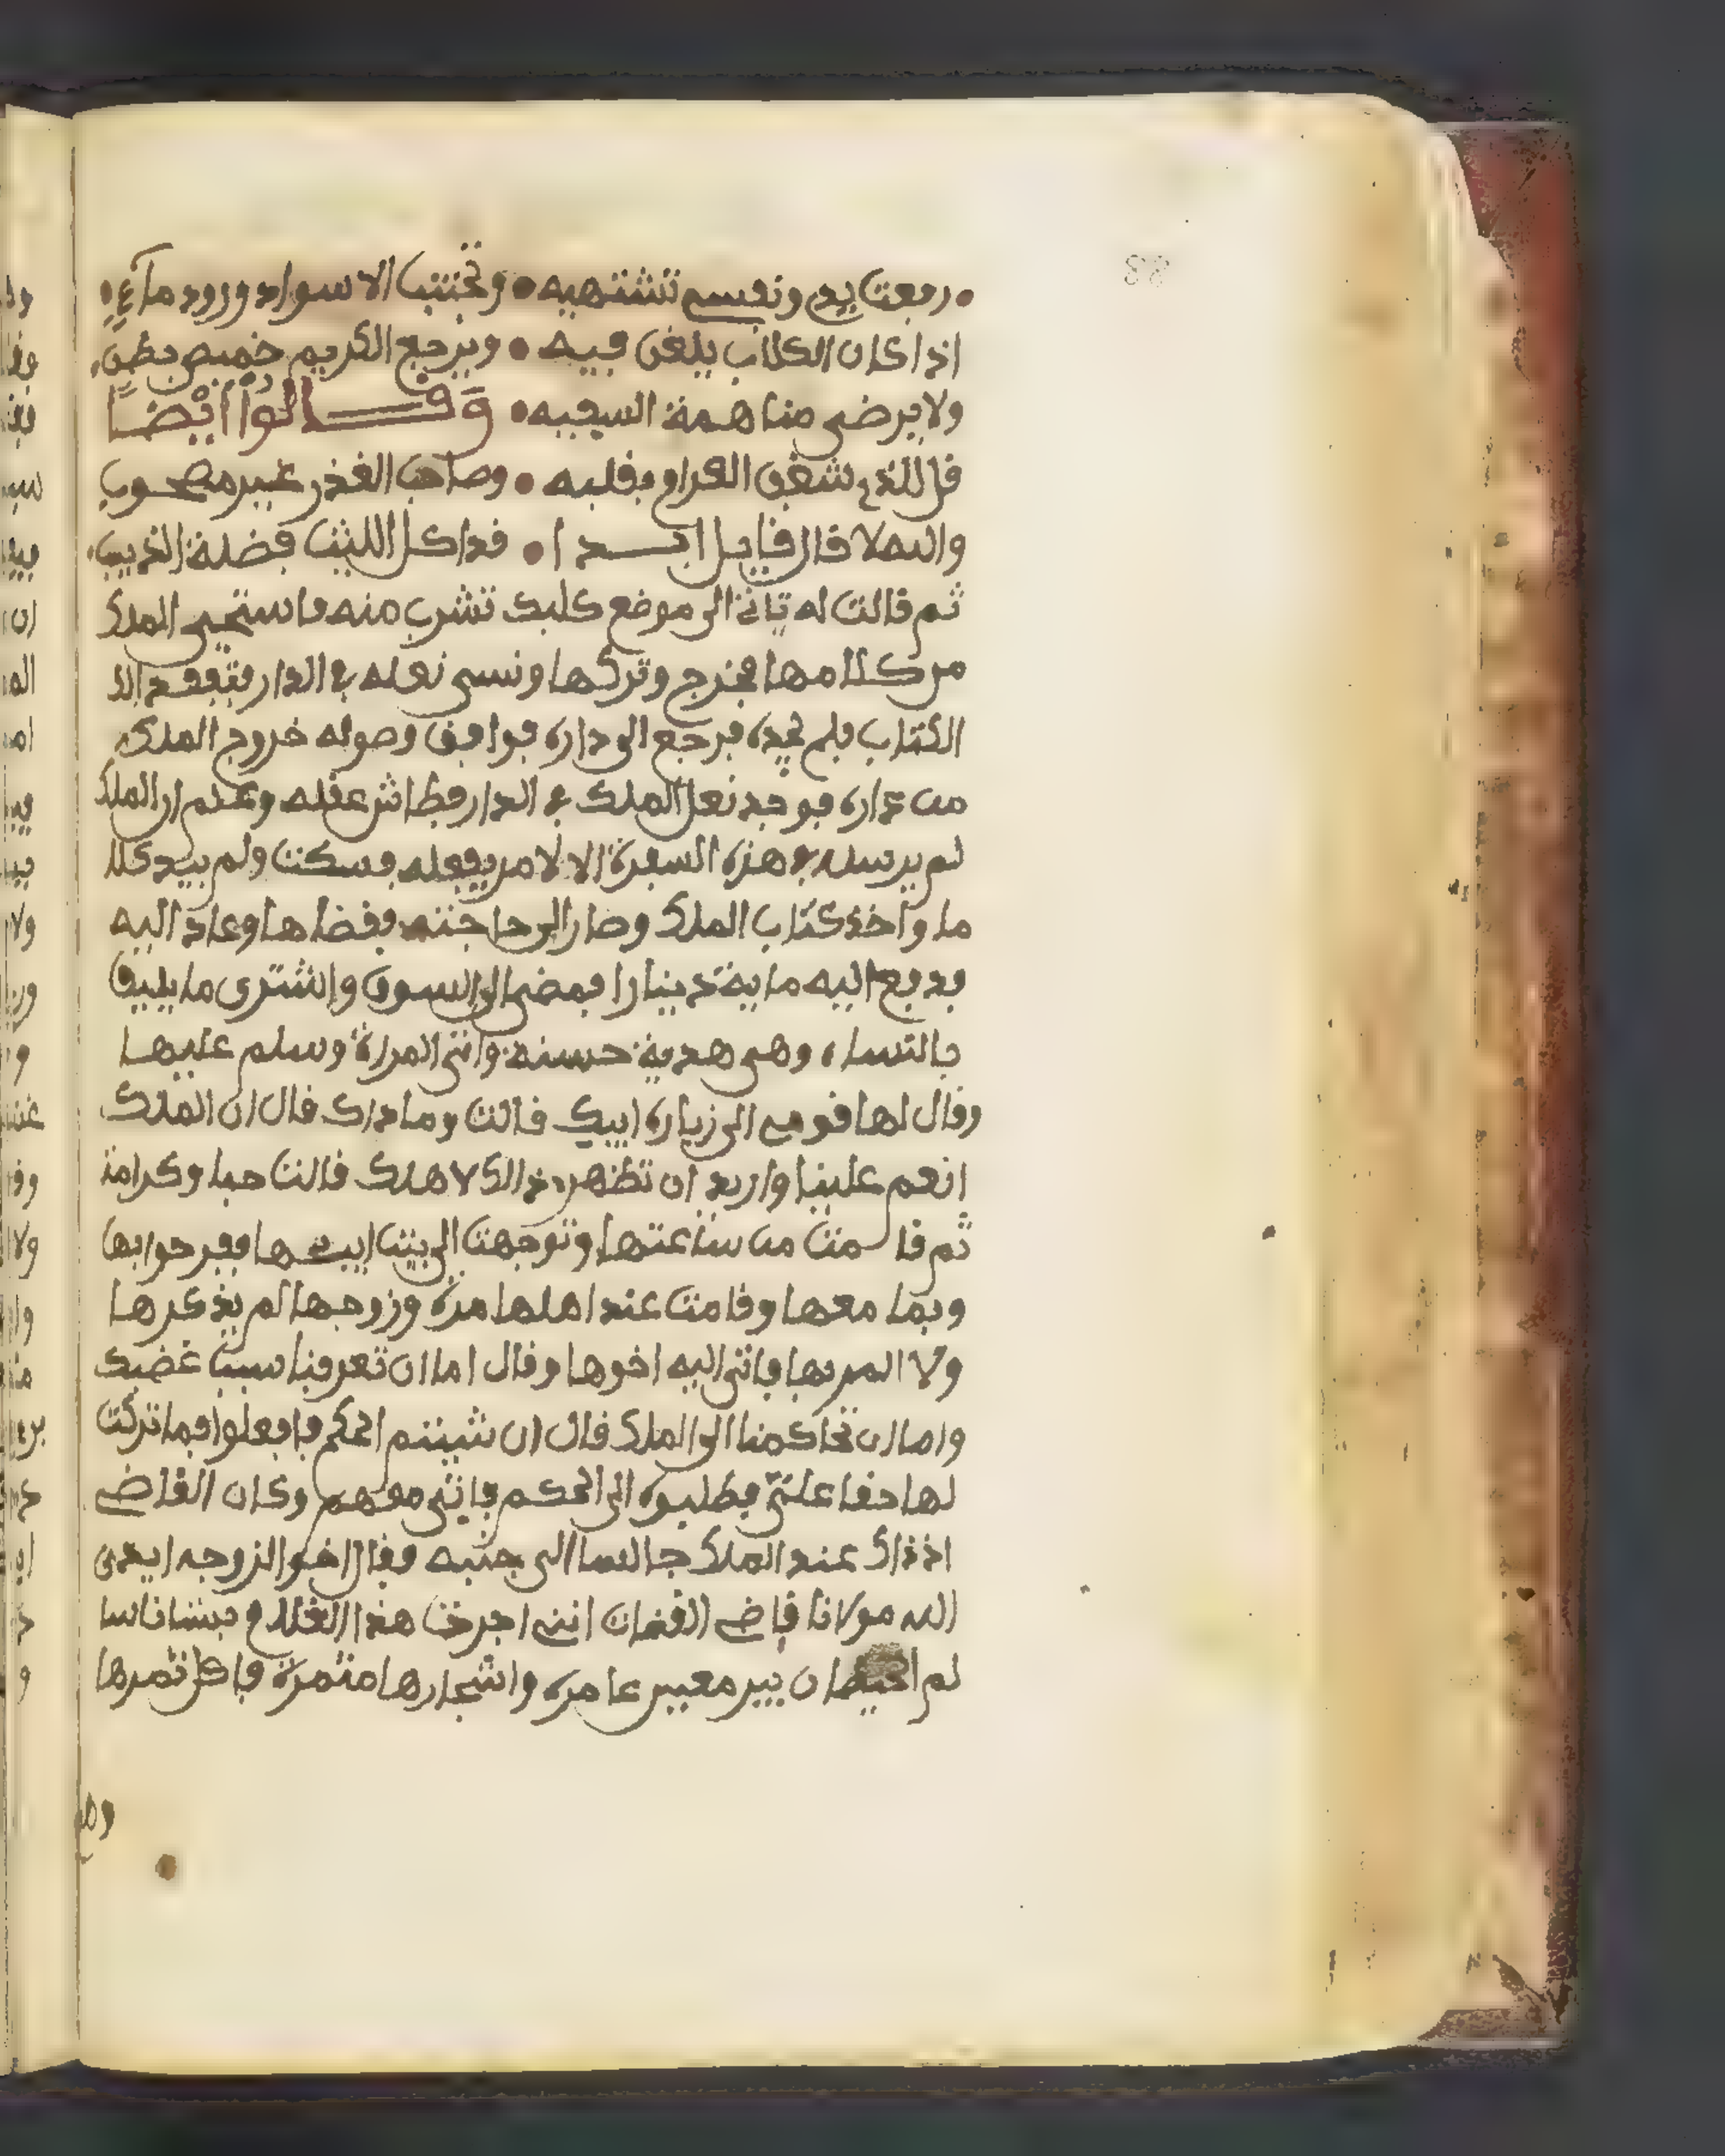 رفعت يدي ونفسي تشتهيه • وتجتنب الاسواد ورود ماء
اذا كان الكلاب يلغن فيه • ويرجع الكريم خميص بطن
ولا يرضى مناهمة السفيه • وقالوا أيضًا
قل للذي شغف الغرام بقلبه • وصاحب الغدر غير مصحوب
والله لا قال قايل ابدا • قد اكل الليث فضلة الذيب
ثم قالت له تاتي الى موضع كلبك تشرب منه فاستحيى الملك
من كلامها فخرج وتركها ونسى نعله في الدار فتفقد الذ
الكتاب فلم يجده فرجع الى داره فوافق وصوله خروج الملك
من داره فوجد نعل الملك في الدار فطاش عقله وعلم ان الملك
لم يرسله في هذه السفرة الا لامر يفعله فسكت ولم يبد كلا
ما واخذ كتاب الملك وصار الى حاجته فقضاها وعاد اليه
فدفع اليه ماية دينارا فمضى الى السوق واشترى ما يليق
بالنساء وهي هدية حسنة واتى المراة وسلم عليها
وقال لها قومي الى زيارة ابيك قالت وما ذاك قال ان الملك
انعم علينا واريد ان تظهر ذالك لاهلك قالت حبا وكرامة
ثم قامت من ساعتها وتوجهت الى بيت ابيها ففرحوا بها
وبما معها وقامت عند اهلها مدة وزوجها لم يذكرها
ولا المر بها فاتى اليه اخوها وقال اما ان تعرفنا سبب غضبك
واما ان تحاكمنا الى الملك قال ان شيتم الحكم فافعلوا فما تركت
لها حقا علي فطلبوه الى الحكم فاتى معهم وكان القاضي
اذذاك عند الملك جالسا الى جنبه فقال اخو الزوجه ايد
الله مولانا قاضي القضات انني اجرت هذا الغلام بستانا سا
لم الحيطان بير معين عامرة واشجارها مثمرة فاكل ثمرها